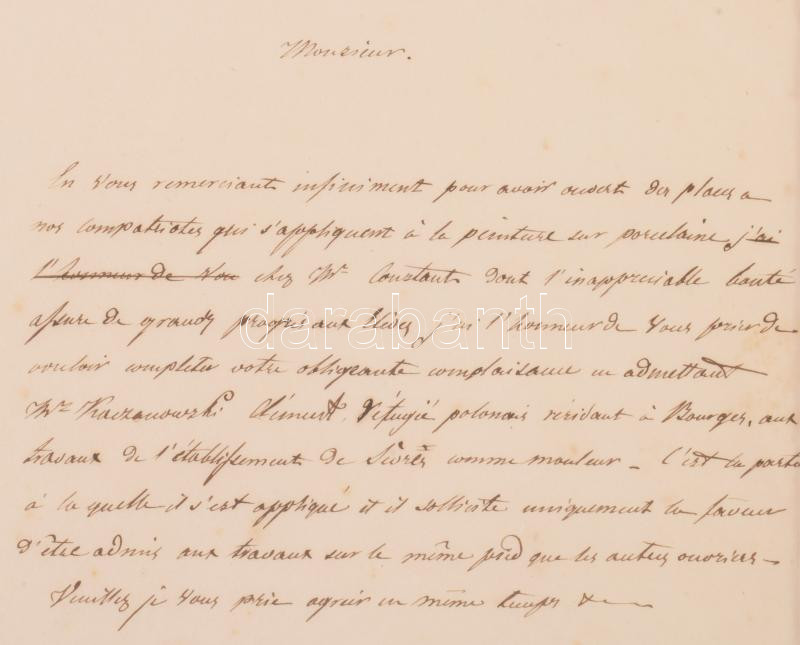 Monsieur.
En vous remerciant infiniment pour avoir ouvert des places a
nos compatriotes qui s'appliquent à la peinture sur porcelaine j'ai
l'honneur de vou chez Mr Constant dont l'inappreciable bonté
assure de grands progrès aux élèves, j'ai l'honneur de vous prier de
vouloir completer votre obligeante complaisance en admettant
Mr Kaczanowski Clément, réfugié polonais résidant à Bourges, aux
travaux de l'établissement de Sèvres comme mouleur - C'est la partie
à la quelle il s'est appliqué et il sollicite uniquement la faveur
d'être admis aux travaux sur le même pied que les autres ouvriers -
Veuillez je vous prie agréer en même temps &
darabanth